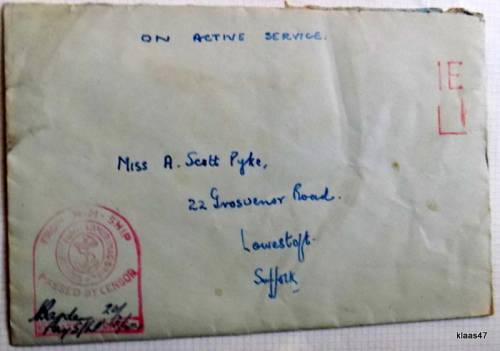 ON ACTIVE SERVICE.
IE
Miss A. Scott Pyke,
22 Grosvenor Road.
Lowestoft
Suffolk
FROM H·M·SHIP
PASSED BY CENSOR
klaas47